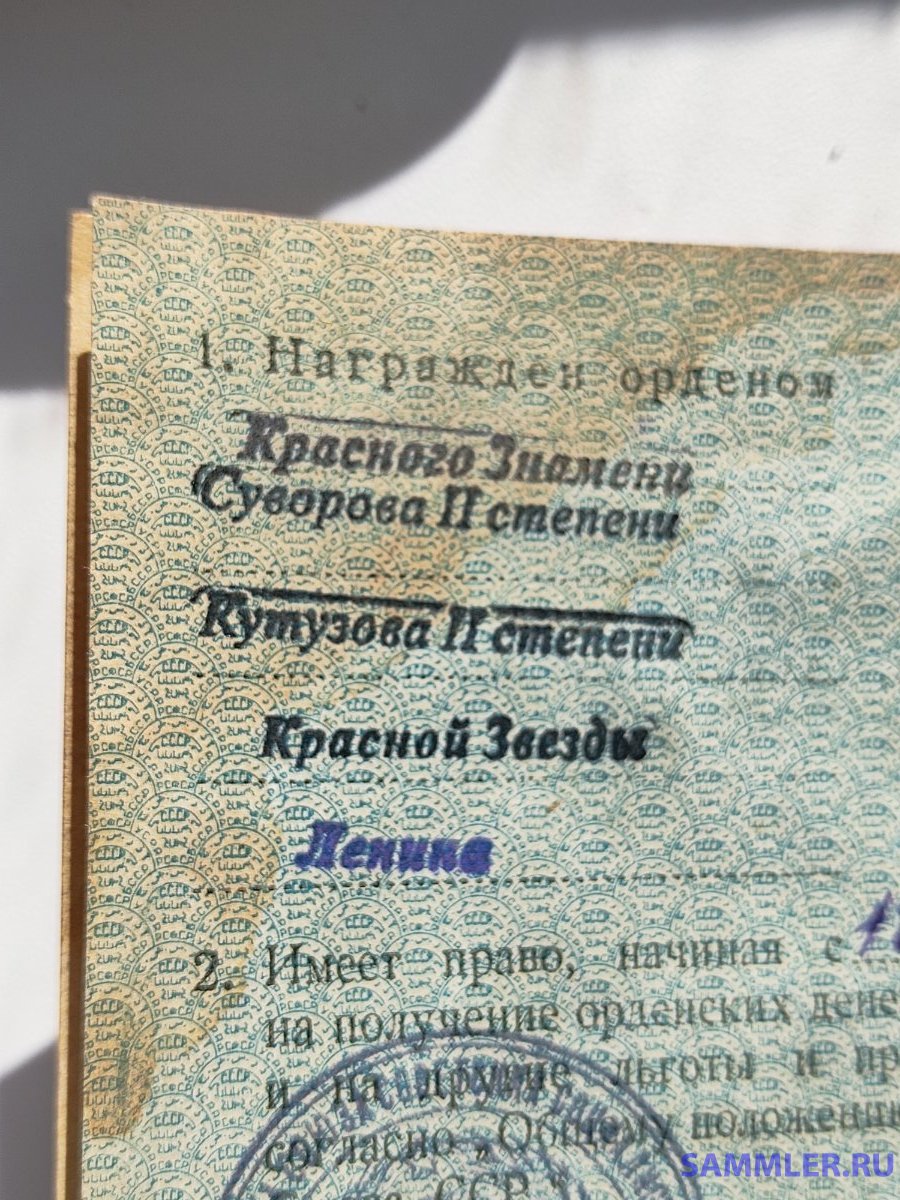 1. Награжден орденом
Красного Знамени
Суворова II степени
Кутузова II степени
Красной Звезды
Ленина
2. Имеет право, начиная с
на получение орденских дене
и на другие льготы и пр
согласно „Общему положени
СССР"
SAMMLER.RU